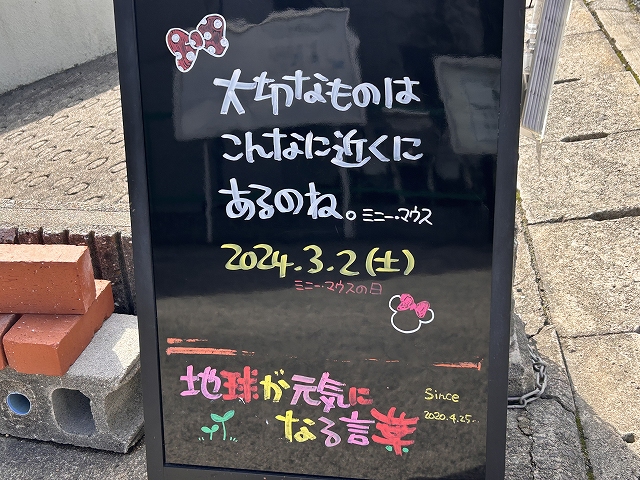 大切なものは
こんなに近くに
あるのね。ミニー・マウス
2024.3.2(土)
ミニー・マウスの日
地球が元気に
なる言葉
Since
2020.4.25..